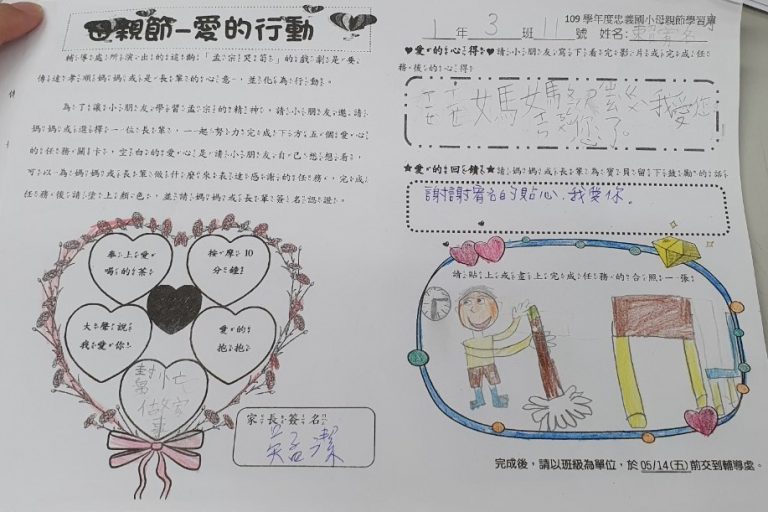 母親節-愛的行動
輔導處所演出的這齣「孟宗哭筍」的戲劇是要
傳達孝順媽媽或是長輩的心意，並化為行動。
為了讓小朋友學習孟宗的精神，請小朋友邀請
媽媽或選擇一位長輩，一起努力完成下方五個愛心
的任務關卡，空白的愛心是請小朋友自己想想看，
可以為媽媽或長輩做什麼來表達感謝的任務，完成
任務後請塗上顏色，並請媽媽或長輩簽名認證。
奉上愛
喝的茶
按摩10
分鐘！
大聲說
我愛你！
愛的
抱抱
幫忙
做家
事
家長簽名
109學年度忠義國小母親節學習單
1年3班11號 姓名：
♥愛的心得♥請小朋友寫下看完影片或完成任
務後的心得
媽媽 我愛您
您了。
★愛的回饋★請媽媽或長輩為寶貝留下鼓勵的話
謝謝 的貼心，我愛你。
請貼上或畫上完成任務的合照一張
完成後，請以班級為單位，於05/14(五)前交到輔導處。